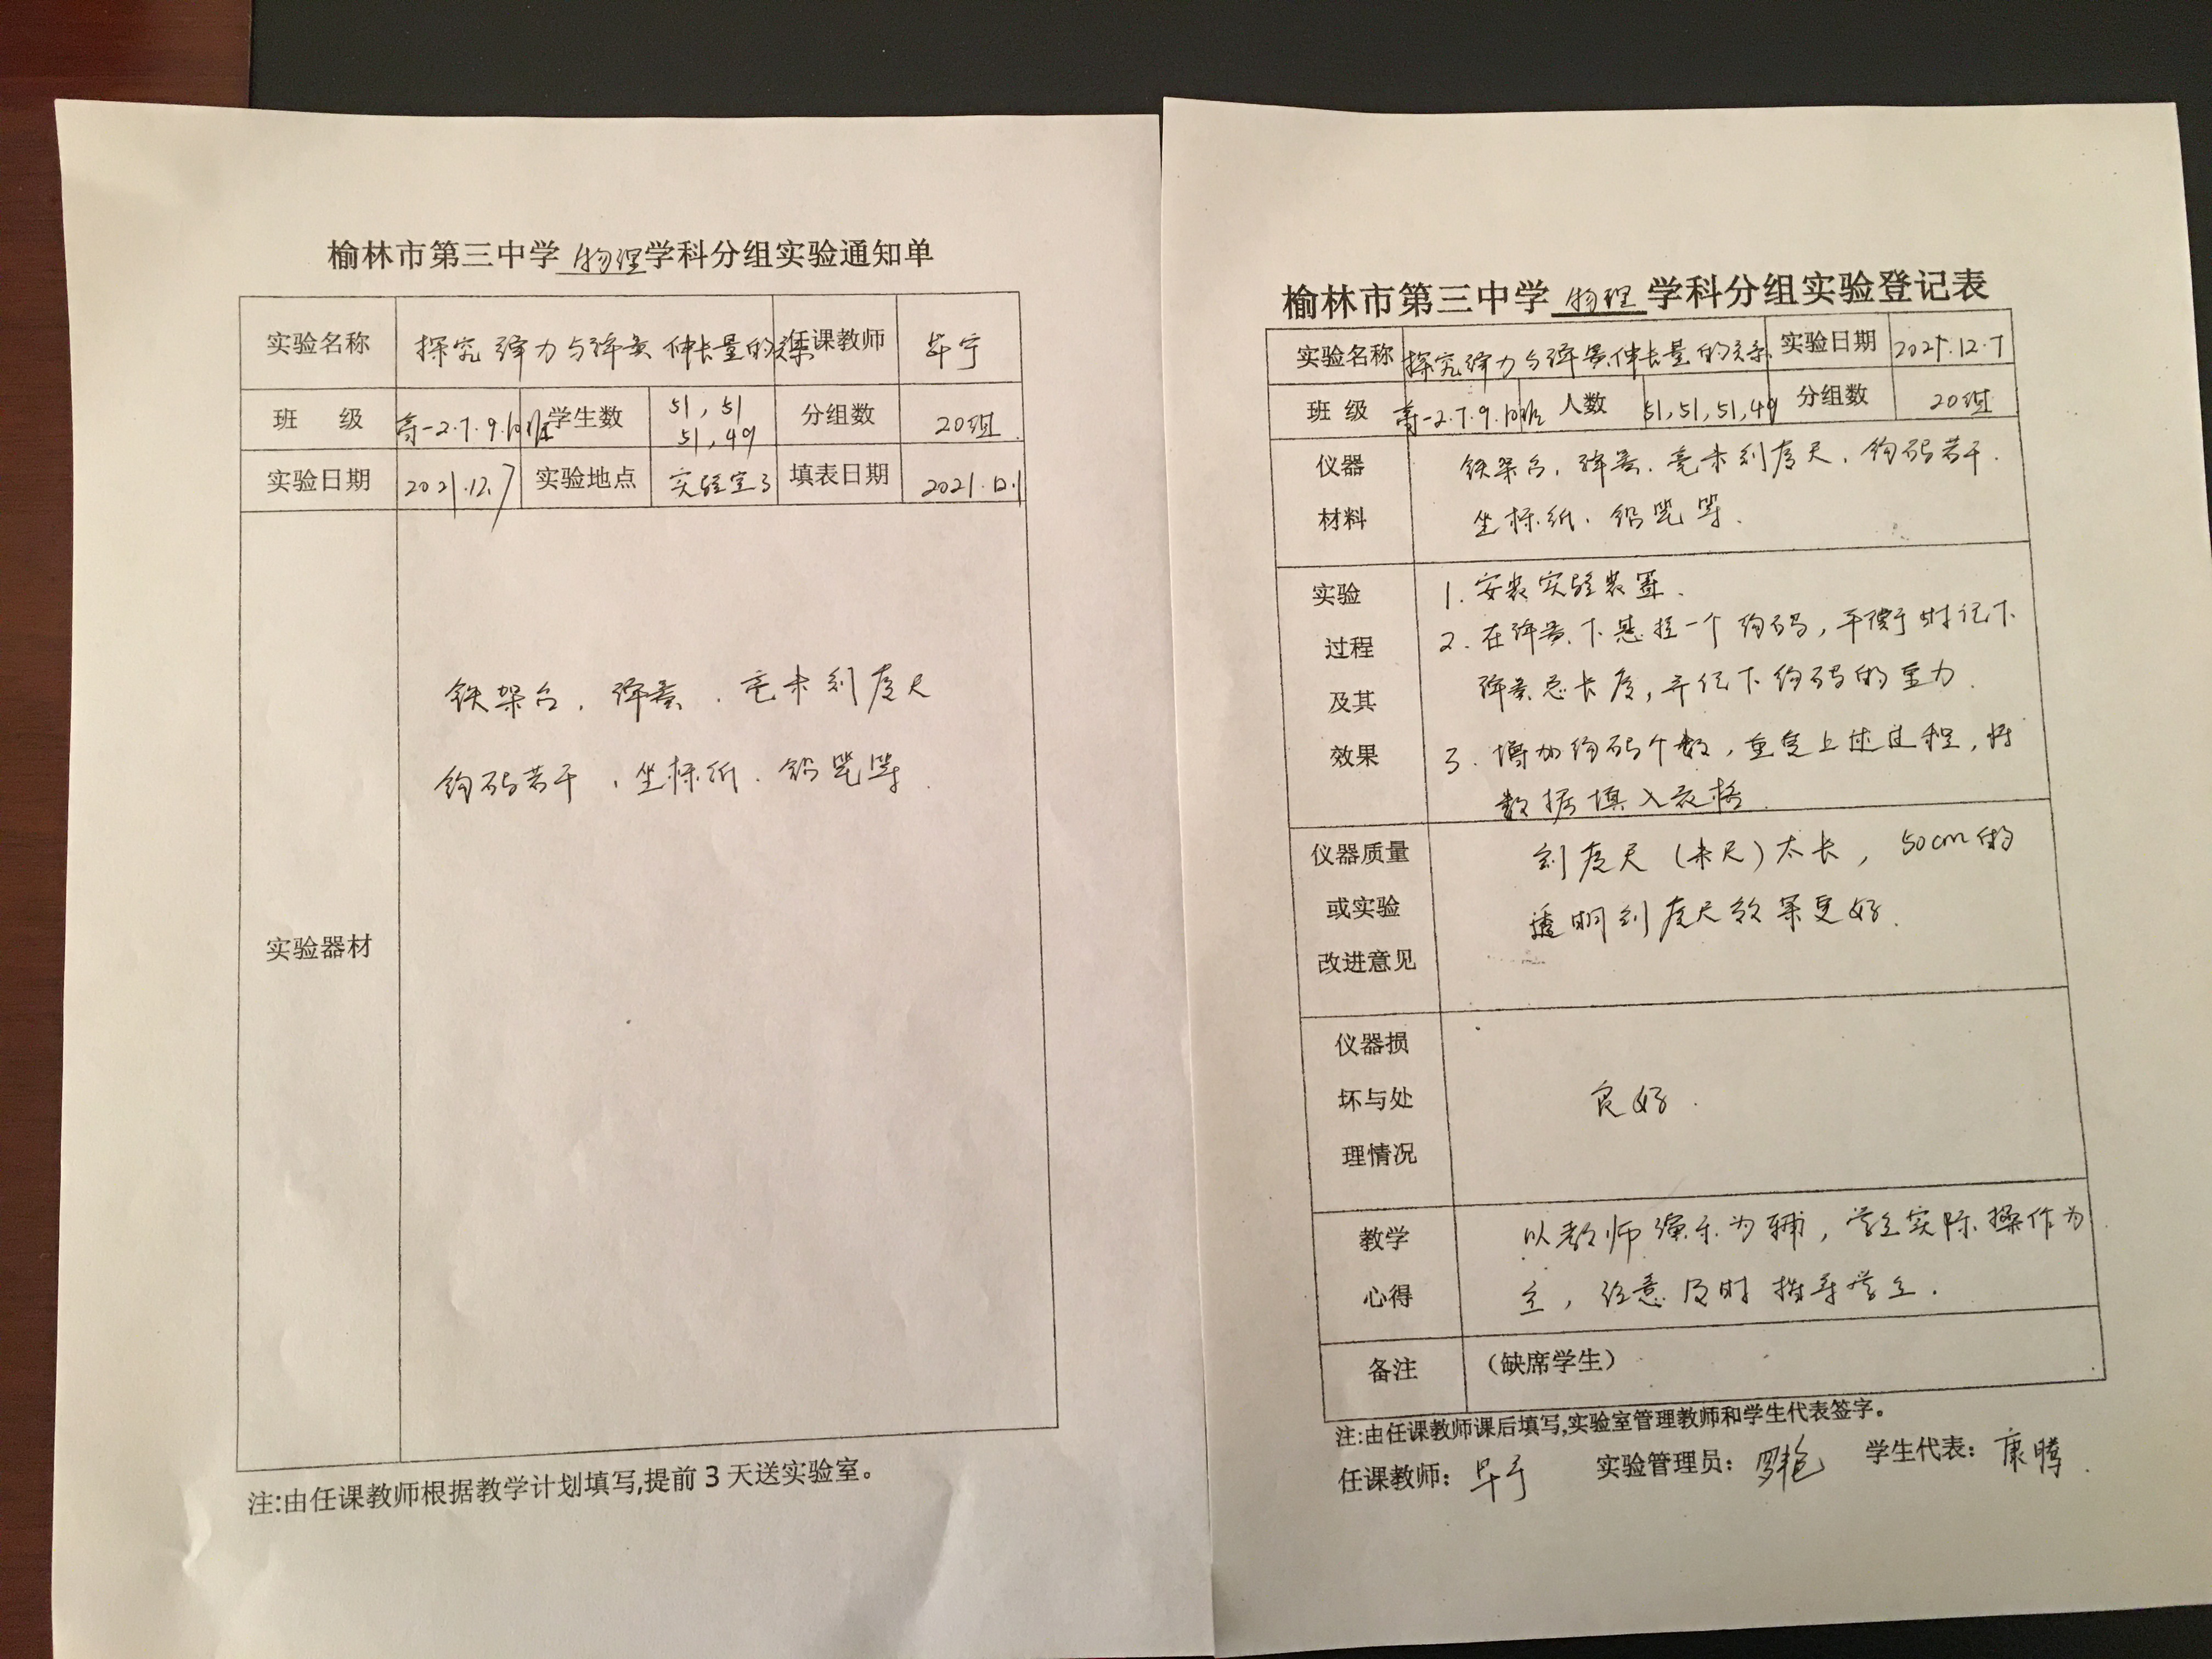 榆林市第三中学 物理 学科分组实验通知单
实验名称 探究弹力与弹簧伸长量的关系 任课教师 毕宁
班 级 高一2.7.9.10班 学生数 51,51 51,49 分组数 20组
实验日期 2021.12.7 实验地点 实验室3 填表日期 2021.12.1
实验器材
铁架台、弹簧、毫米刻度尺
钩码若干、坐标纸、铅笔等.
注:由任课教师根据教学计划填写,提前3天送实验室。
榆林市第三中学 物理 学科分组实验登记表
实验名称 探究弹力与弹簧伸长量的关系 实验日期 2021.12.7
班 级 高一2.7.9.10班 人数 51,51,51,49 分组数 20组
仪器 材料
铁架台、弹簧、毫米刻度尺、钩码若干、
坐标纸、铅笔等.
实验 过程 及其 效果
1.安装实验装置.
2.在弹簧下悬挂一个钩码,平衡时记下
弹簧总长度,并记下钩码的重力.
3.增加钩码个数,重复上述过程,将
数据填入表格.
仪器质量 或实验 改进意见
刻度尺(米尺)太长,50cm的
透明刻度尺效果更好.
仪器损 坏与处 理情况
良好.
教学 心得
以教师演示为辅,学生实际操作为
主,注意及时指导学生.
备注 (缺席学生)
注:由任课教师课后填写,实验室管理教师和学生代表签字。
任课教师: 毕宁 实验管理员: 罗艳 学生代表: 康腾.